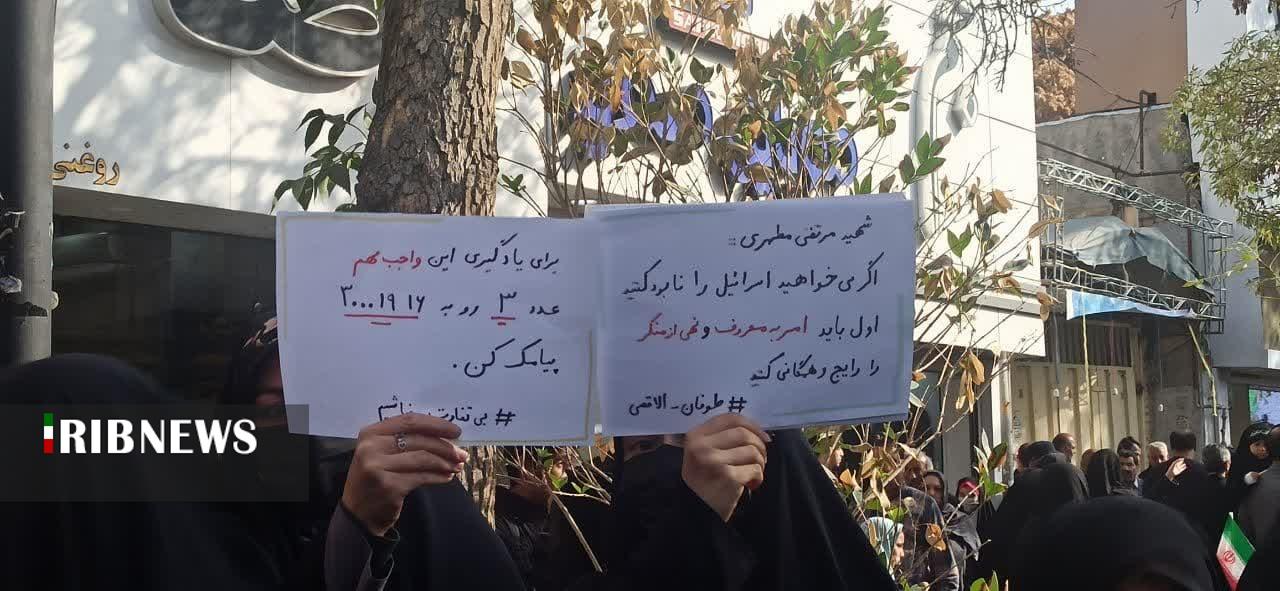 شهید مرتضی مطهری ::
اگر می خواهید اسرائیل را نابود کنید
اول باید امر به معروف و نهی از منکر
را رایج و همگانی کنید
#طوفان_الاقصی
برای یادگیری این واجب مهم
عدد ۳ رو به ۳۰۰۰۱۹۱۶
پیامک کن.
# بی تفاوت نباشیم
روغنی
IRIBNEWS